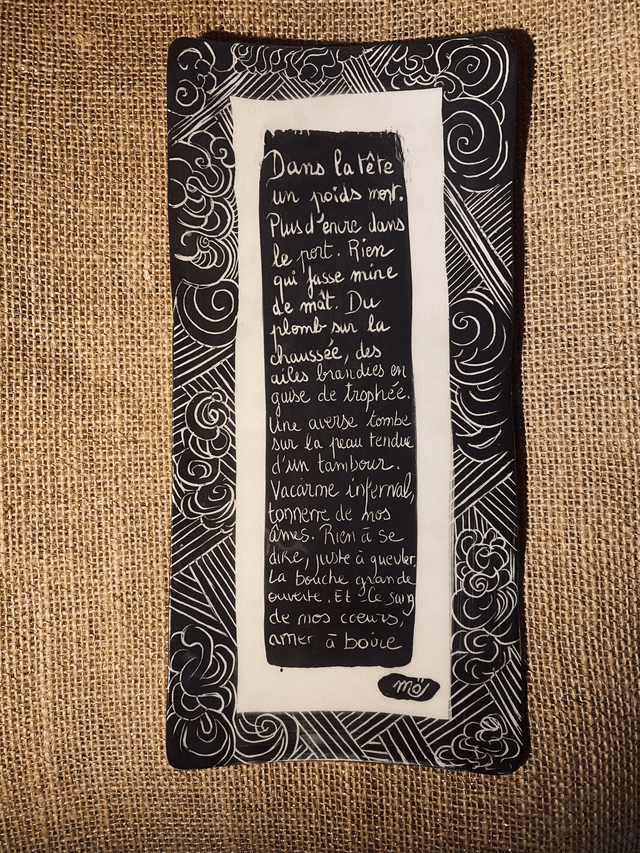 Dans la tête
un poids mort.
Plus d'encre dans
le port. Rien
qui fasse mine
de mât. Du
plomb sur la
chaussée, des
ailes brandies en
guise de trophée.
Une averse tombe
sur la peau tendue
d'un tambour.
Vacarme infernal,
tonnerre de nos
âmes. Rien à se
dire, juste à gueuler,
La bouche grande
ouverte. Et le sang
de nos cœurs,
amer à boire
mö